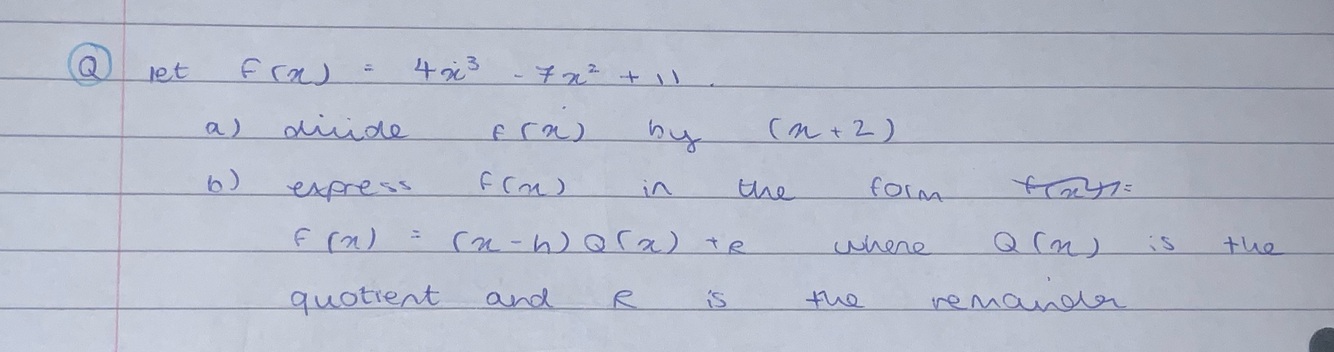 Q let f(x) = 4x³ - 7x² + 11.
a) divide f(x) by (x+2)
b) express f(x) in the form f(x) =
f(x) = (x-h) Q(x) + R where Q(x) is the
quotient and R is the remainder